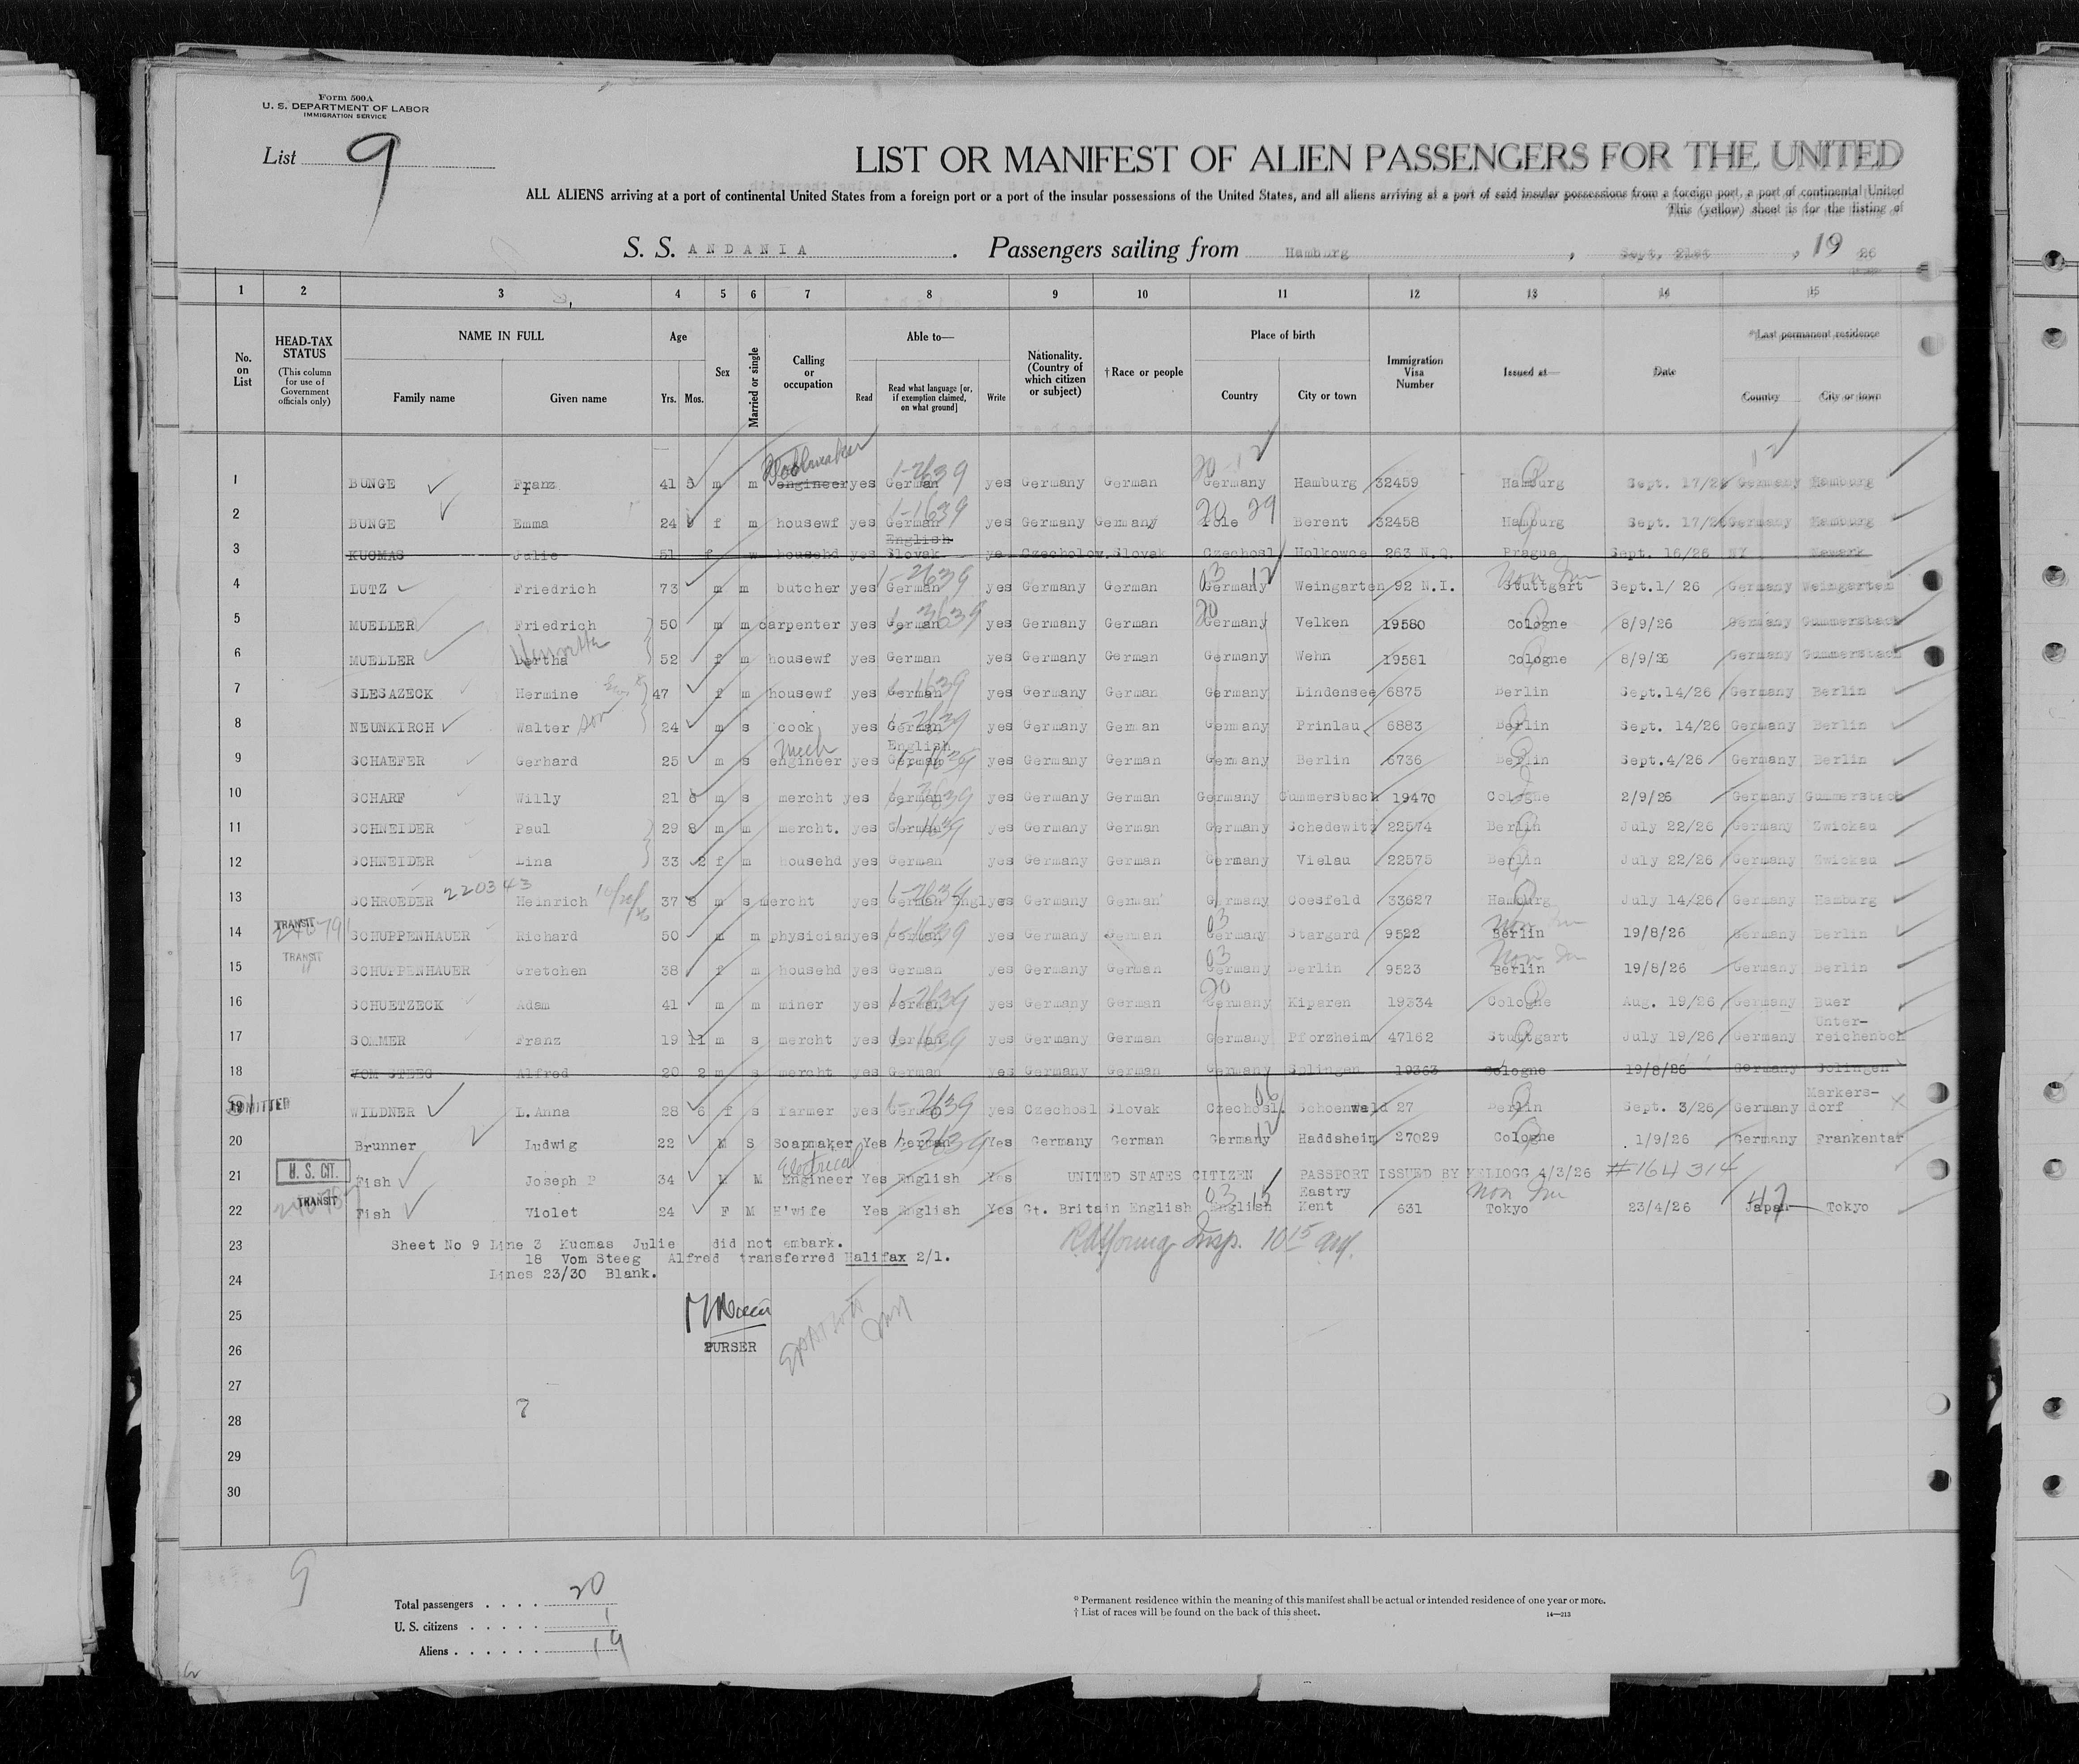 Form 500A
U. S. DEPARTMENT OF LABOR
IMMIGRATION SERVICE
List 9
LIST OR MANIFEST OF ALIEN PASSENGERS FOR THE UNITED
ALL ALIENS arriving at a port of continental United States from a foreign port or a port of the insular possessions of the United States, and all aliens arriving at a port of said insular possessions from a foreign port, a port of continental United
This (yellow) sheet is for the listing of
S. S. ANDANIA . Passengers sailing from Hamburg , Sept. 21st , 19 26
1 2 3 4 5 6 7 8 9 10 11 12 13 14 15
No. on List
HEAD-TAX STATUS
(This column for use of Government officials only)
NAME IN FULL
Family name Given name
Age
Yrs. Mos.
Sex
Married or single
Calling or occupation
Able to—
Read
Read what language [or, if exemption claimed, on what ground]
Write
Nationality. (Country of which citizen or subject)
†Race or people
Place of birth
Country City or town
Immigration Visa Number
Issued at—
Date
*Last permanent residence
Country City or town
1 BUNGE Franz 41 m m engineer yes German yes Germany German Germany Hamburg 32459 Hamburg Sept. 17/26 Germany Hamburg
2 BUNGE Emma 24 f m housewf yes German yes Germany Germany Pole Berent 32458 Hamburg Sept. 17/26 Germany Hamburg
English
3 KUCMAS Julie 51 f w househd yes Slovak ye Czecholow. Slovak Czechosl Holkowce 263 N.Q. Prague Sept. 16/26 NY Newark
4 LUTZ Friedrich 73 m m butcher yes German yes Germany German Germany Weingarten 92 N.I. Stuttgart Sept.1/ 26 Germany Weingarten
5 MUELLER Friedrich 50 m m carpenter yes German yes Germany German Germany Velken 19580 Cologne 8/9/26 Germany Gummersbach
6 MUELLER Bertha 52 f m housewf yes German yes Germany German Germany Wehn 19581 Cologne 8/9/26 Germany Gummersbach
7 SLESAZECK Hermine 47 f m housewf yes German yes Germany German Germany Lindensee 6875 Berlin Sept.14/26 Germany Berlin
8 NEUNKIRCH Walter son 24 m s cook yes German yes Germany German Germany Prinlau 6883 Berlin Sept. 14/26 Germany Berlin
Mech English
9 SCHAEFER Gerhard 25 m s engineer yes German yes Germany German Germany Berlin 6736 Berlin Sept.4/26 Germany Berlin
10 SCHARF Willy 21 m s mercht yes German yes Germany German Germany Gummersbach 19470 Cologne 2/9/26 Germany Gummersbach
11 SCHNEIDER Paul 29 8 m m mercht. yes German yes Germany German Germany Schedewitz 22574 Berlin July 22/26 Germany Zwickau
12 SCHNEIDER Lina 33 2 f m househd yes German yes Germany German Germany Vielau 22575 Berlin July 22/26 Germany Zwickau
13 SCHROEDER 220343 Heinrich 37 8 m s mercht yes German Engl yes Germany German Germany Coesfeld 33627 Hamburg July 14/26 Germany Hamburg
TRANSIT
14 SCHUPPENHAUER Richard 50 m m physician yes German yes Germany German Germany Stargard 9522 Berlin 19/8/26 Germany Berlin
TRANSIT
15 SCHUPPENHAUER Gretchen 38 f m househd yes German yes Germany German Germany Berlin 9523 Berlin 19/8/26 Germany Berlin
16 SCHUETZECK Adam 41 m m miner yes German yes Germany German Germany Kiparen 19334 Cologne Aug. 19/26 Germany Buer
17 SOMMER Franz 19 11 m s mercht yes German yes Germany German Germany Pforzheim 47162 Stuttgart July 19/26 Germany Unter-reichenbch
18 VOM STEEG Alfred 20 2 m s mercht yes German yes Germany German Germany Solingen 19363 Cologne 19/8/26 Germany Solingen
19 ADMITTED WILDNER L.Anna 28 6 f s farmer yes German yes Czechosl Slovak Czechosl. Schoenwald 27 Berlin Sept. 3/26 Germany Markers-dorf
20 Brunner Ludwig 22 M S Soapmaker Yes German Yes Germany German Germany Haddsheim 27029 Cologne 1/9/26 Germany Frankental
U. S. CIT.
Electrical
21 Fish Joseph P 34 M M Engineer Yes English Yes UNITED STATES CITIZEN PASSPORT ISSUED BY KELLOGG 4/3/26 #164314
TRANSIT
22 Fish Violet 24 F M H'wife Yes English Yes Gt. Britain English English Eastry Kent 631 Tokyo 23/4/26 Japan Tokyo
23 Sheet No 9 Line 3 Kucmas Julie did not embark.
18 Vom Steeg Alfred transferred Halifax 2/1.
24 Lines 23/30 Blank.
25
PURSER
26
27
28
29
30
9
Total passengers . . . . 20
U. S. citizens . . . . . 1
Aliens . . . . . . 19
* Permanent residence within the meaning of this manifest shall be actual or intended residence of one year or more.
† List of races will be found on the back of this sheet.
14—213